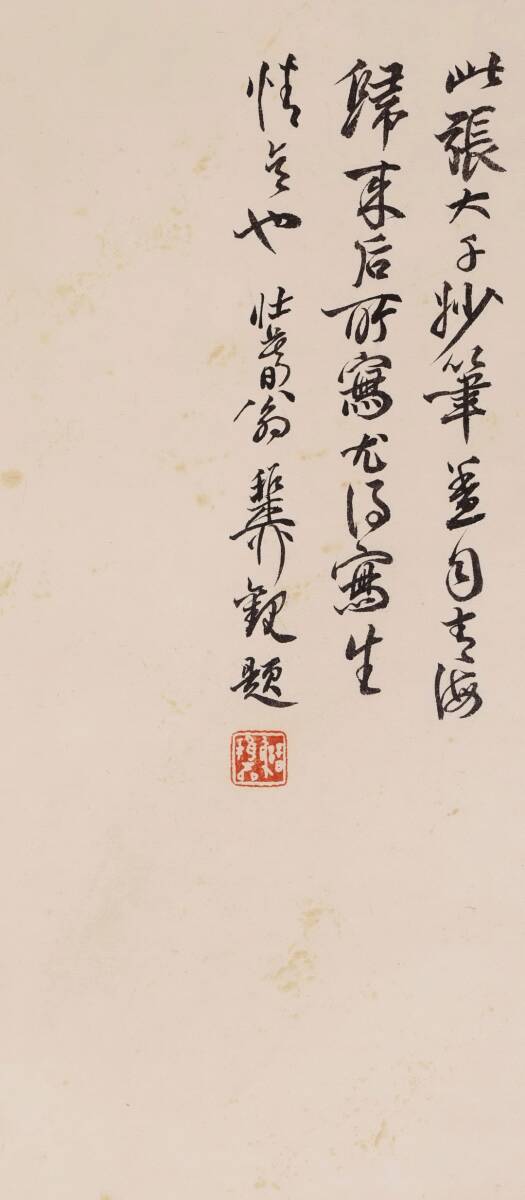 此張大千妙筆蓋自青海
歸來后所寫尤得寫生
情意也 壯暮翁稚柳觀題